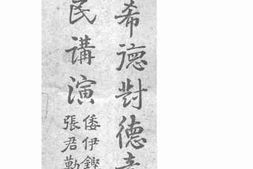 希德對德意
民講演
倭伊鏗
張君勱